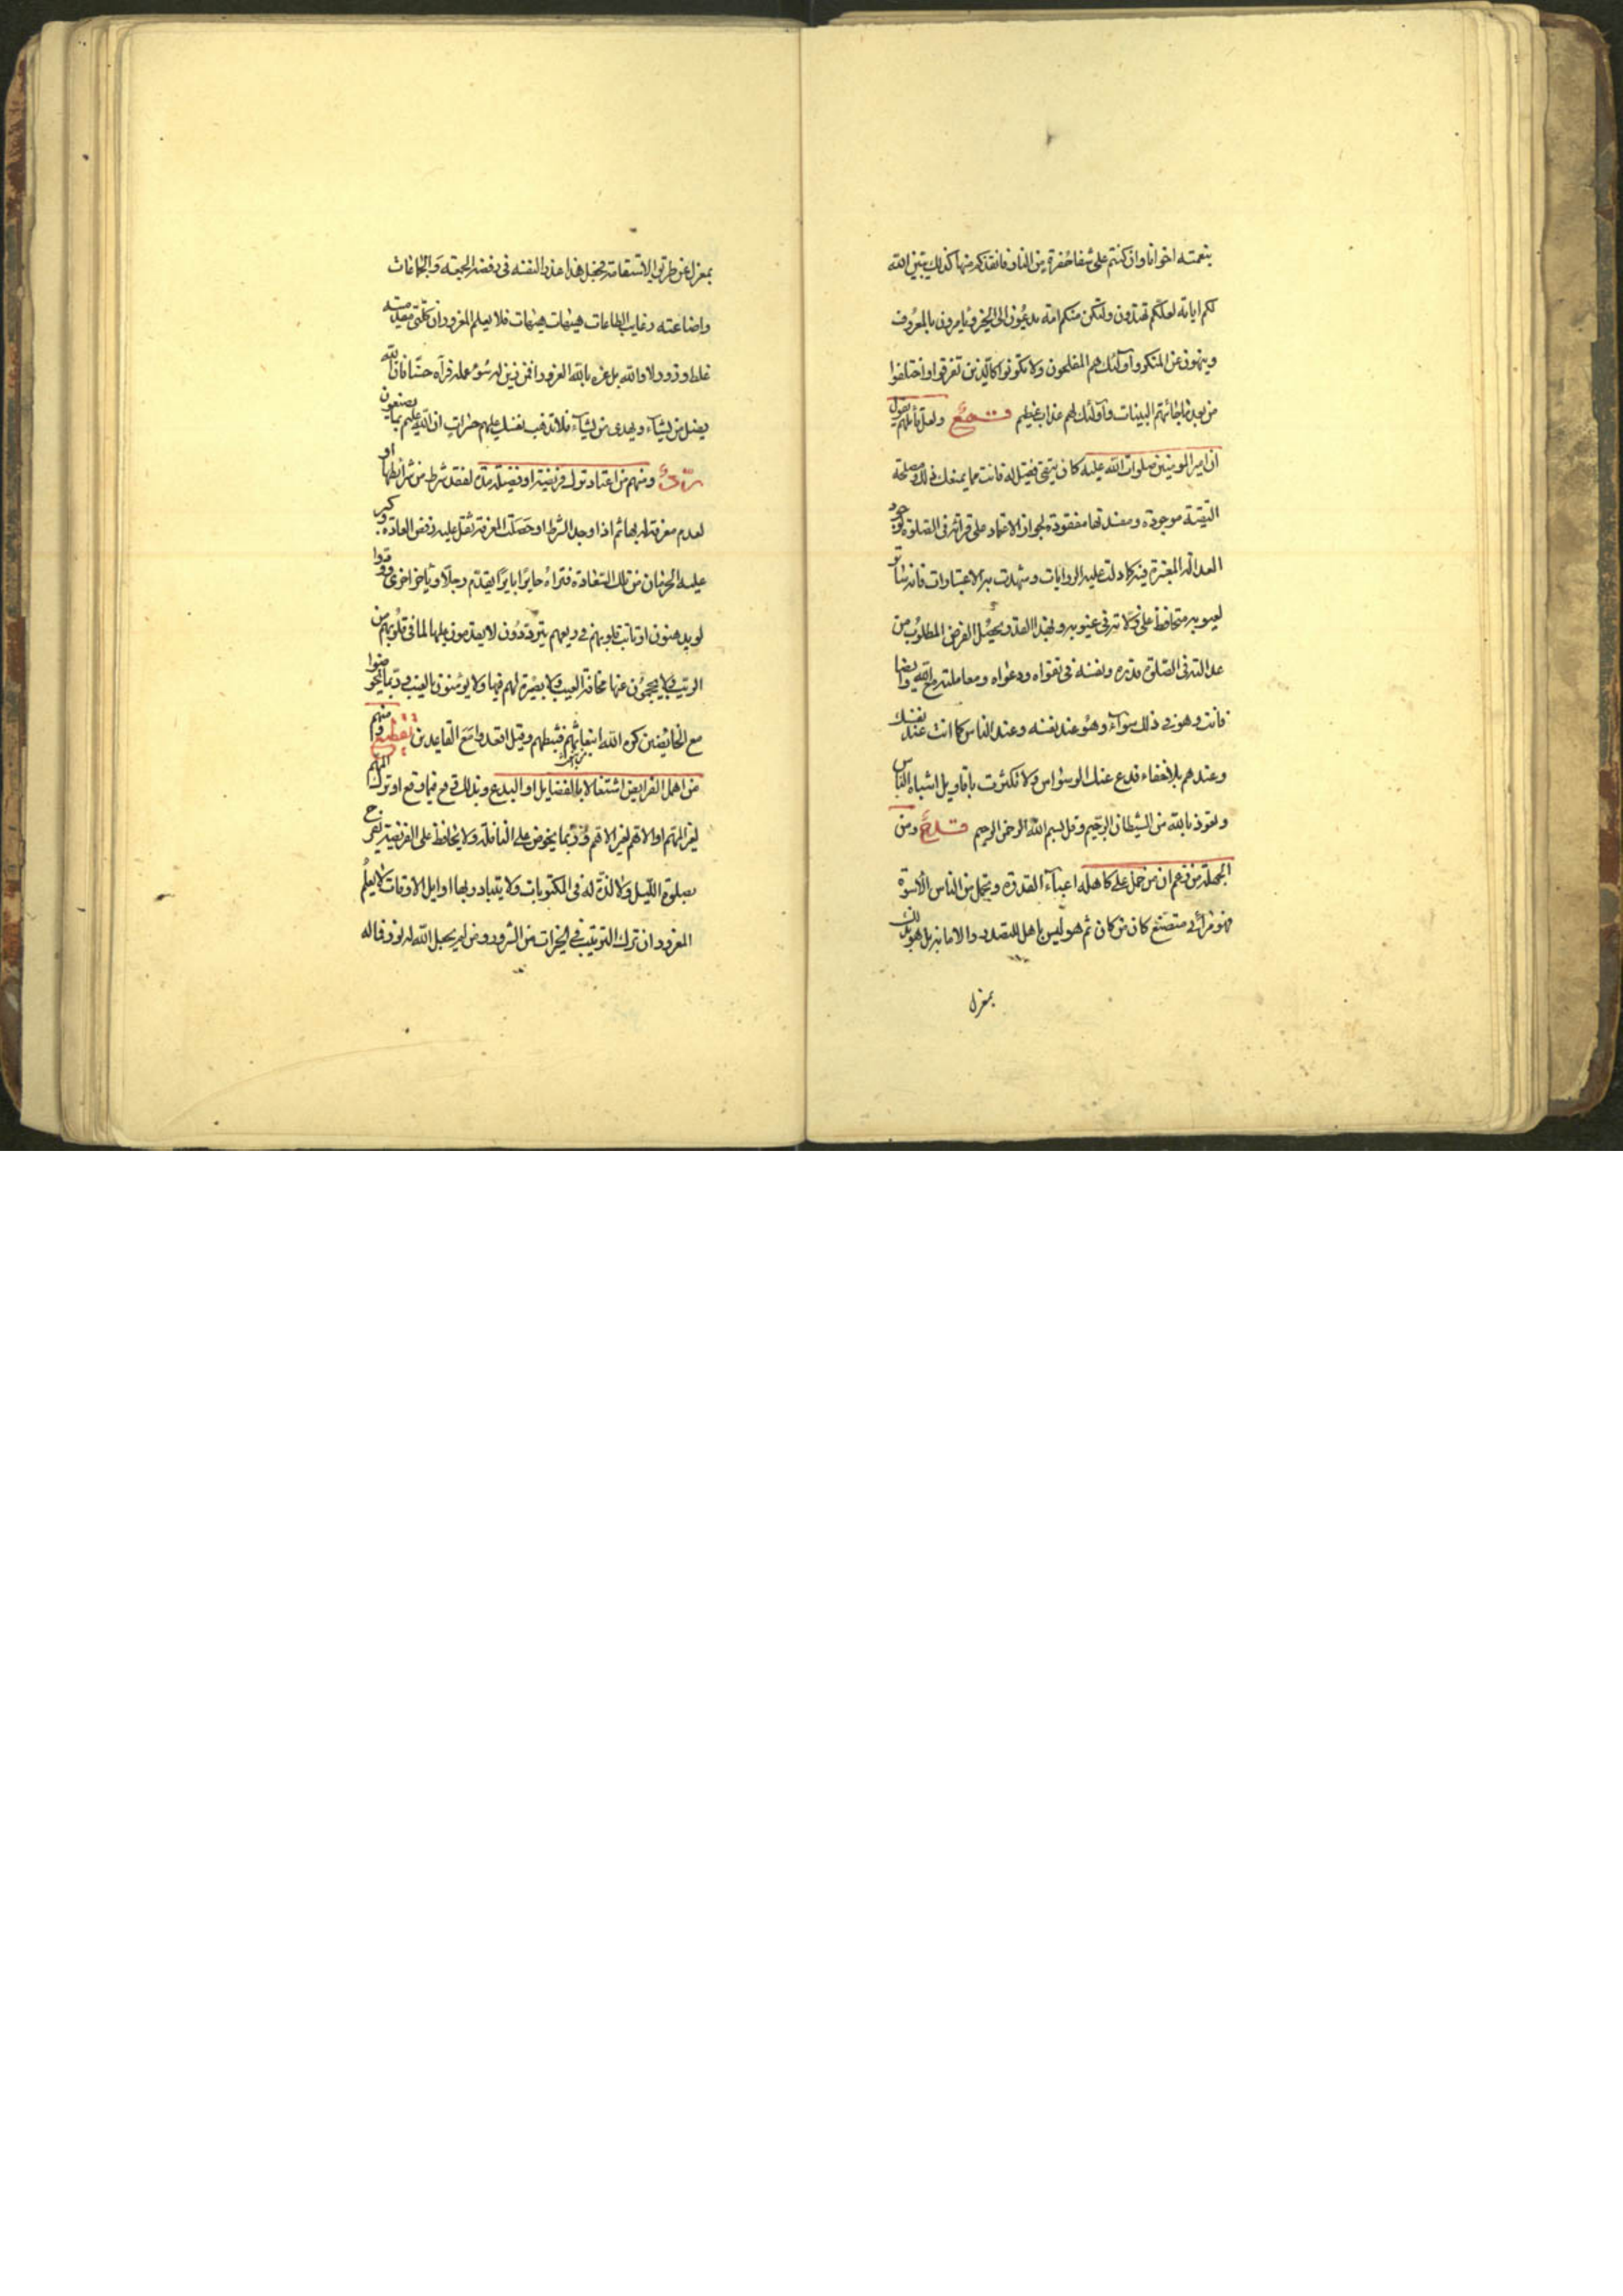 بنعمته اخوانا وان كنتم على شفا حفرة من النار فانقذكم منها كذلك يبين الله
لكم اياته لعلكم تهتدون ولتكن منكم امة يدعون الى الخير ويامرون بالمعروف
وينهون عن المنكر واولئك هم المفلحون ولا تكونوا كالذين تفرقوا واختلفوا
من بعد ما جائهم البينات واولئك لهم عذاب عظيم ولعل قائلهم يقول
ان امير المومنين صلوات الله عليه كان يتقى فقيل له فانت مما يمنعك فى ذلك ومصلحة
التقية موجودة ومفسدتها مفقودة لجواز الاعتماد على قرائته فى الصلوة لوجود
العدالة المعتبرة فيه كما دلت عليه الروايات وشهدت به الاعتبارات فانه ساتر
لعيوبه متحافظ على كلاته فى عيوبه وبهذا القدر يحصل الغرض المطلوب من
عدالته فى الصلوة ونفسه فى تقواه ودعواه ومعاملته مع الله وايضا
فانت وهو فى ذلك سواء وهو عند نفسه وعند الناس كما انت عند نفسك
وعندهم بلا خفاء فدع عنك الوسواس ولا تكترث باقاويل اشباه الناس
وتعوذ بالله من الشيطان الرجيم وقل بسم الله الرحمن الرحيم ومن
الجهلة من زعم ان من حمل على كاهله اعباء القدوة وتحمل من الناس الاسوة
فهو مرائى متصنع كان من كان ثم هو ليس باهل للتصدر والامامة بل هو بذلك
بمعزل
بمعزل عن طريق الاستقامة فجعل هذا عذرا لنفسه فى رفضه الجمعة والجماعات
واضاعته رغايب الطاعات هيهات هيهات فلا يعلم المغرور ان كلتى مقدمتيه
غلط وزور لا والله بل غره بالله الغرور افمن زين له سوء عمله فرآه حسنا فان الله
يضل من يشاء ويهدى من يشاء فلا تذهب نفسك عليهم حسرات ان الله عليم بما يصنعون
ومنهم من اعتاد ترك فريضة او فضيلة مدة لفقد شرط من شرائطها او
لعدم معرفته بها ثم اذا وجد الشرط او حصلت المعرفة ثقل عليه رفض العادة وكبر
عليه الحرمان من تلك السعادة فتراه حايرا بايرا يقدم رجلا وياخر اخرى ودوا
لو يدهنون ارتابت قلوبهم فهم فى ريبهم يترددون لا يقدمون عليها لما فى قلوبهم من
الريب ولا يحجمون عنها مخافة العيب فلا بصيرة لهم فيها ولا يومنون بالغيب وربما يخوضوا
مع الخائضين كره الله انبعاثهم فثبطهم وقيل اقعدوا مع القاعدين ومنهم
من اهمل الفرايض اشتغالا بالفضايل او البدع وبذلك وقع فيما وقع او ترك المهم
لغير المهم او الاهم لغير الاهم وربما يخوض على النافلة ولا يحافظ على الفريضة يفرح
بصلوة الليل ولا لذة له فى المكتوبات ولا يتبادر بها اوايل الاوقات لا يعلم
المغرور ان ترك الترتيب فى الخيرات من الشرور ومن لم يجعل الله له نورا فما له